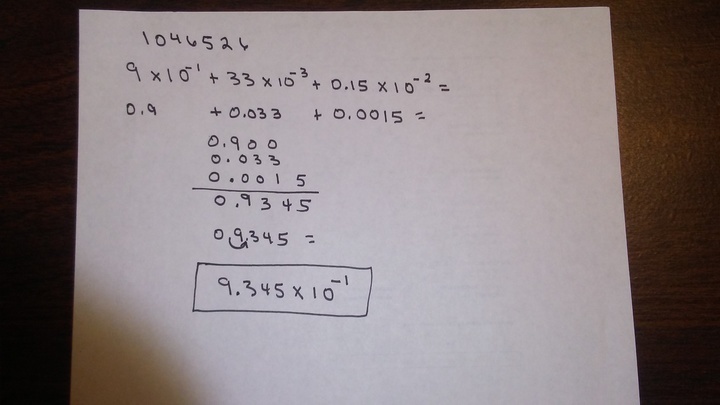 1046526
9 × 10⁻¹ + 33 × 10⁻³ + 0.15 × 10⁻² =
0.9 + 0.033 + 0.0015 =
0.900
0.033
0.0015
0.9345
0.9.345 =
9.345 × 10⁻¹